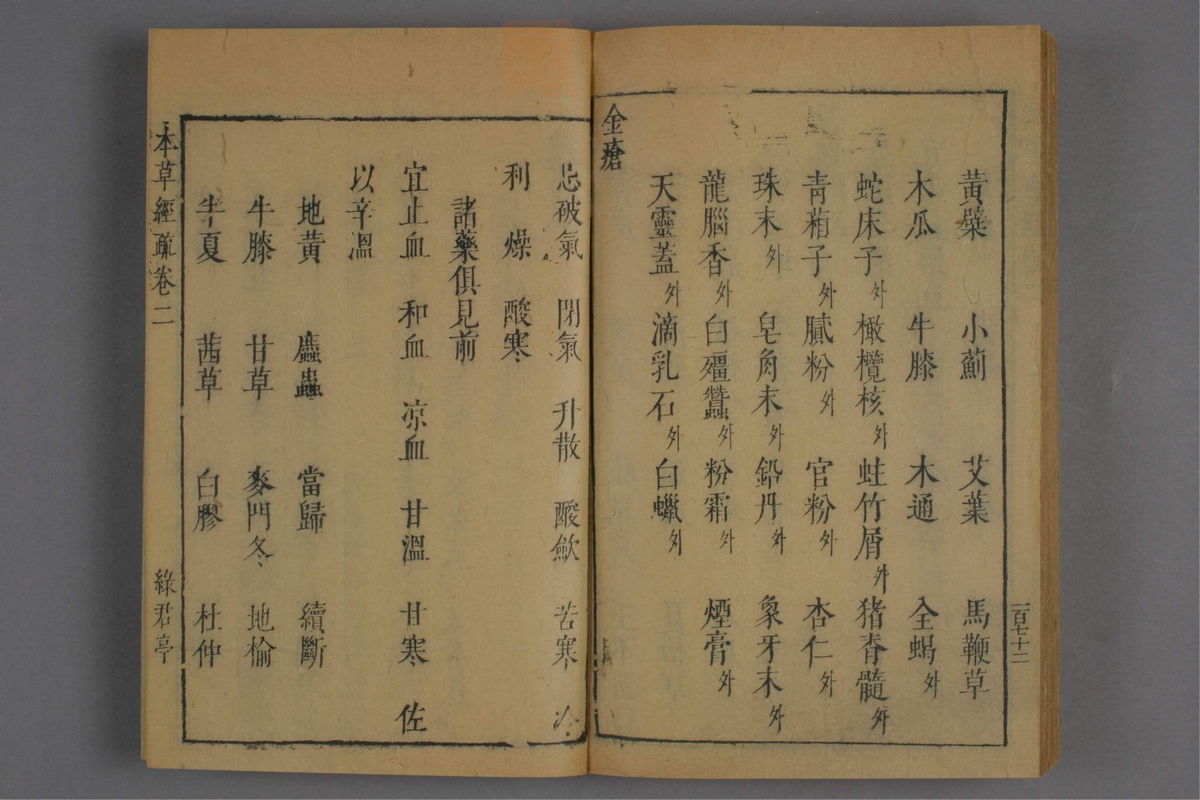 一百七十二
黃蘗 小薊 艾葉 馬鞭草
木瓜 牛膝 木通 全蝎外
蛇床子外 橄欖核外 蛀竹屑外 猪脊髓外
青葙子外 膩粉外 官粉外 杏仁外
珠末外 皂角末外 鉛丹外 象牙末外
龍腦香外 白殭蠶外 粉霜外 煙膏外
天靈蓋外 滴乳石外 白蠟外
金瘡
忌破氣 閉氣 升散 酸歛 苦寒 冷
利 燥 酸寒
諸藥俱見前
宜止血 和血 凉血 甘溫 甘寒 佐
以辛溫
地黃 䗪蟲 當歸 續斷
牛膝 甘草 麥門冬 地榆
半夏 茜草 白膠 杜仲
本草經疏卷二 綠君亭